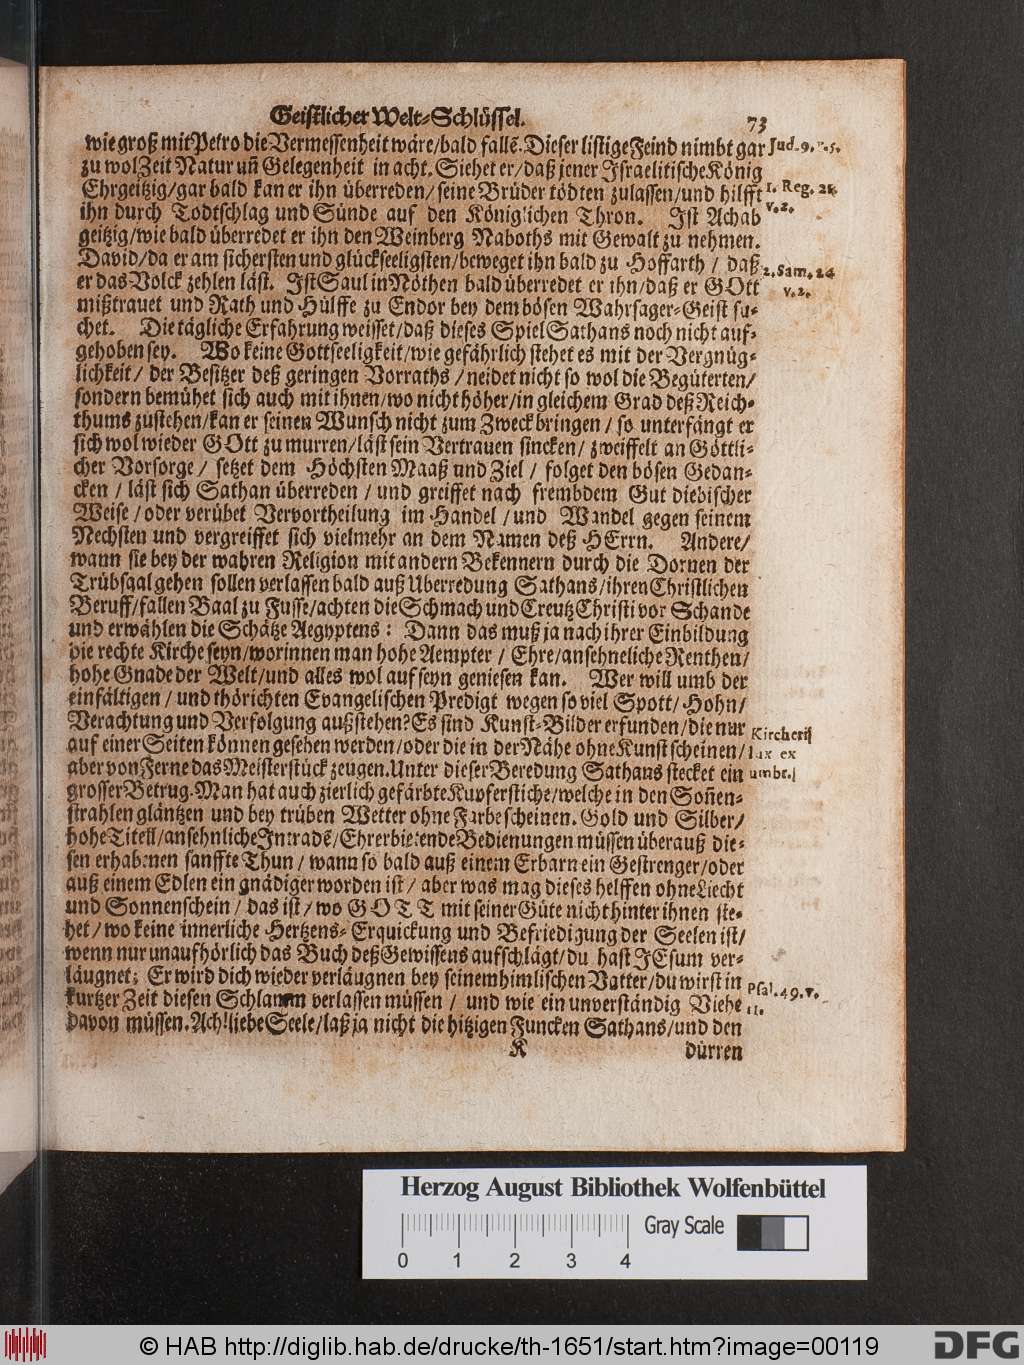 Geistlicher Welt-Schlüssel.
73
wie groß mit Petro die Vermessenheit wäre/bald fallē. Dieser listige Feind nimbt gar
zu wol Zeit Natur uñ Gelegenheit in acht. Siehet er/daß jener Israelitische König
Ehrgeitzig/gar bald kan er ihn überreden/seine Brüder tödten zulassen/und hilfft
ihn durch Todtschlag und Sünde auf den Königlichen Thron. Ist Achab
geitzig/wie bald überredet er ihn den Weinberg Naboths mit Gewalt zu nehmen.
David/da er am sichersten und glückseeligsten/beweget ihn bald zu Hoffarth/ daß
er das Volck zehlen läst. Ist Saul in Nöthen bald überredet er ihn/daß er GOtt
mißtrauet und Rath und Hülffe zu Endor bey dem bösen Wahrsager-Geist su-
chet. Die tägliche Erfahrung weisset/daß dieses Spiel Sathans noch nicht auf-
gehoben sey. Wo keine Gottseeligkeit/wie gefährlich stehet es mit der Vergnüg-
lichkeit/ der Besitzer deß geringen Vorraths/neidet nicht so wol die Begüterten/
sondern bemühet sich auch mit ihnen/wo nicht höher/in gleichem Grad deß Reich-
thums zustehen/kan er seinen Wunsch nicht zum Zweck bringen/ so unterfängt er
sich wol wieder GOtt zu murren/läst sein Vertrauen sincken/ zweiffelt an Göttli-
cher Vorsorge/ setzet dem Höchsten Maaß und Ziel/ folget den bösen Gedan-
cken/ läst sich Sathan überreden/ und greiffet nach frembdem Gut diebischer
Weise/oder verübet Vervortheilung im Handel/und Wandel gegen seinem
Nechsten und vergreiffet sich vielmehr an dem Namen deß HErrn. Andere/
wann sie bey der wahren Religion mit andern Bekennern durch die Dornen der
Trübsaal gehen sollen verlassen bald auß Uberredung Sathans/ihren Christlichen
Beruff/fallen Baal zu Fusse/achten die Schmach und Creutz Christi vor Schande
und erwählen die Schätze Aegyptens: Dann das muß ja nach ihrer Einbildung
die rechte Kirche seyn/worinnen man hohe Aempter/ Ehre/ansehneliche Renthen/
hohe Gnade der Welt/und alles wol auf seyn geniesen kan. Wer will umb der
einfältigen/ und thörichten Evangelischen Predigt wegen so viel Spott/Hohn/
Verachtung und Verfolgung außstehen? Es sind Kunst-Bilder erfunden/die nur
auf einer Seiten können gesehen werden/oder die in der Nähe ohne Kunst scheinen/
aber von Ferne das Meisterstück zeugen. Unter dieser Beredung Sathans stecket ein
grosser Betrug. Man hat auch zierlich gefärbte Kupferstiche/welche in den Soñen-
strahlen gläntzen und bey trüben Wetter ohne Farbe scheinen. Gold und Silber/
hohe Titell/ansehnliche Intradē/Ehrerbietende Bedienungen müssen überauß die-
sen erhabenen sanffte Thun/ wann so bald auß einem Erbarn ein Gestrenger/oder
auß einem Edlen ein gnädiger worden ist/ aber was mag dieses helffen ohne Liecht
und Sonnenschein/ das ist/ wo GOTT mit seiner Güte nicht hinter ihnen ste-
het/wo keine innerliche Hertzens-Erquickung und Befriedigung der Seelen ist/
wenn nur unaufhörlich das Buch deß Gewissens aufschlägt/du hast JEsum ver-
läugnet; Er wird dich wieder verläugnen bey seinem himlischen Vatter/du wirst in
kurtzer Zeit diesen verlassen müssen/ und wie ein unverständig Viehe
davon müssen. Ach! liebe Seele/laß ja nicht die hitzigen Funcken Sathans/und den
K
dürren
Jud. 9. v. 5.
1. Reg. 21.
v. 2.
2. Sam. 24
v. 2.
Kircheri
lux ex
umbr.
Psal. 49. v.
11.
Herzog August Bibliothek Wolfenbüttel
Gray Scale
0 1 2 3 4
© HAB http://diglib.hab.de/drucke/th-1651/start.htm?image=00119
DFG